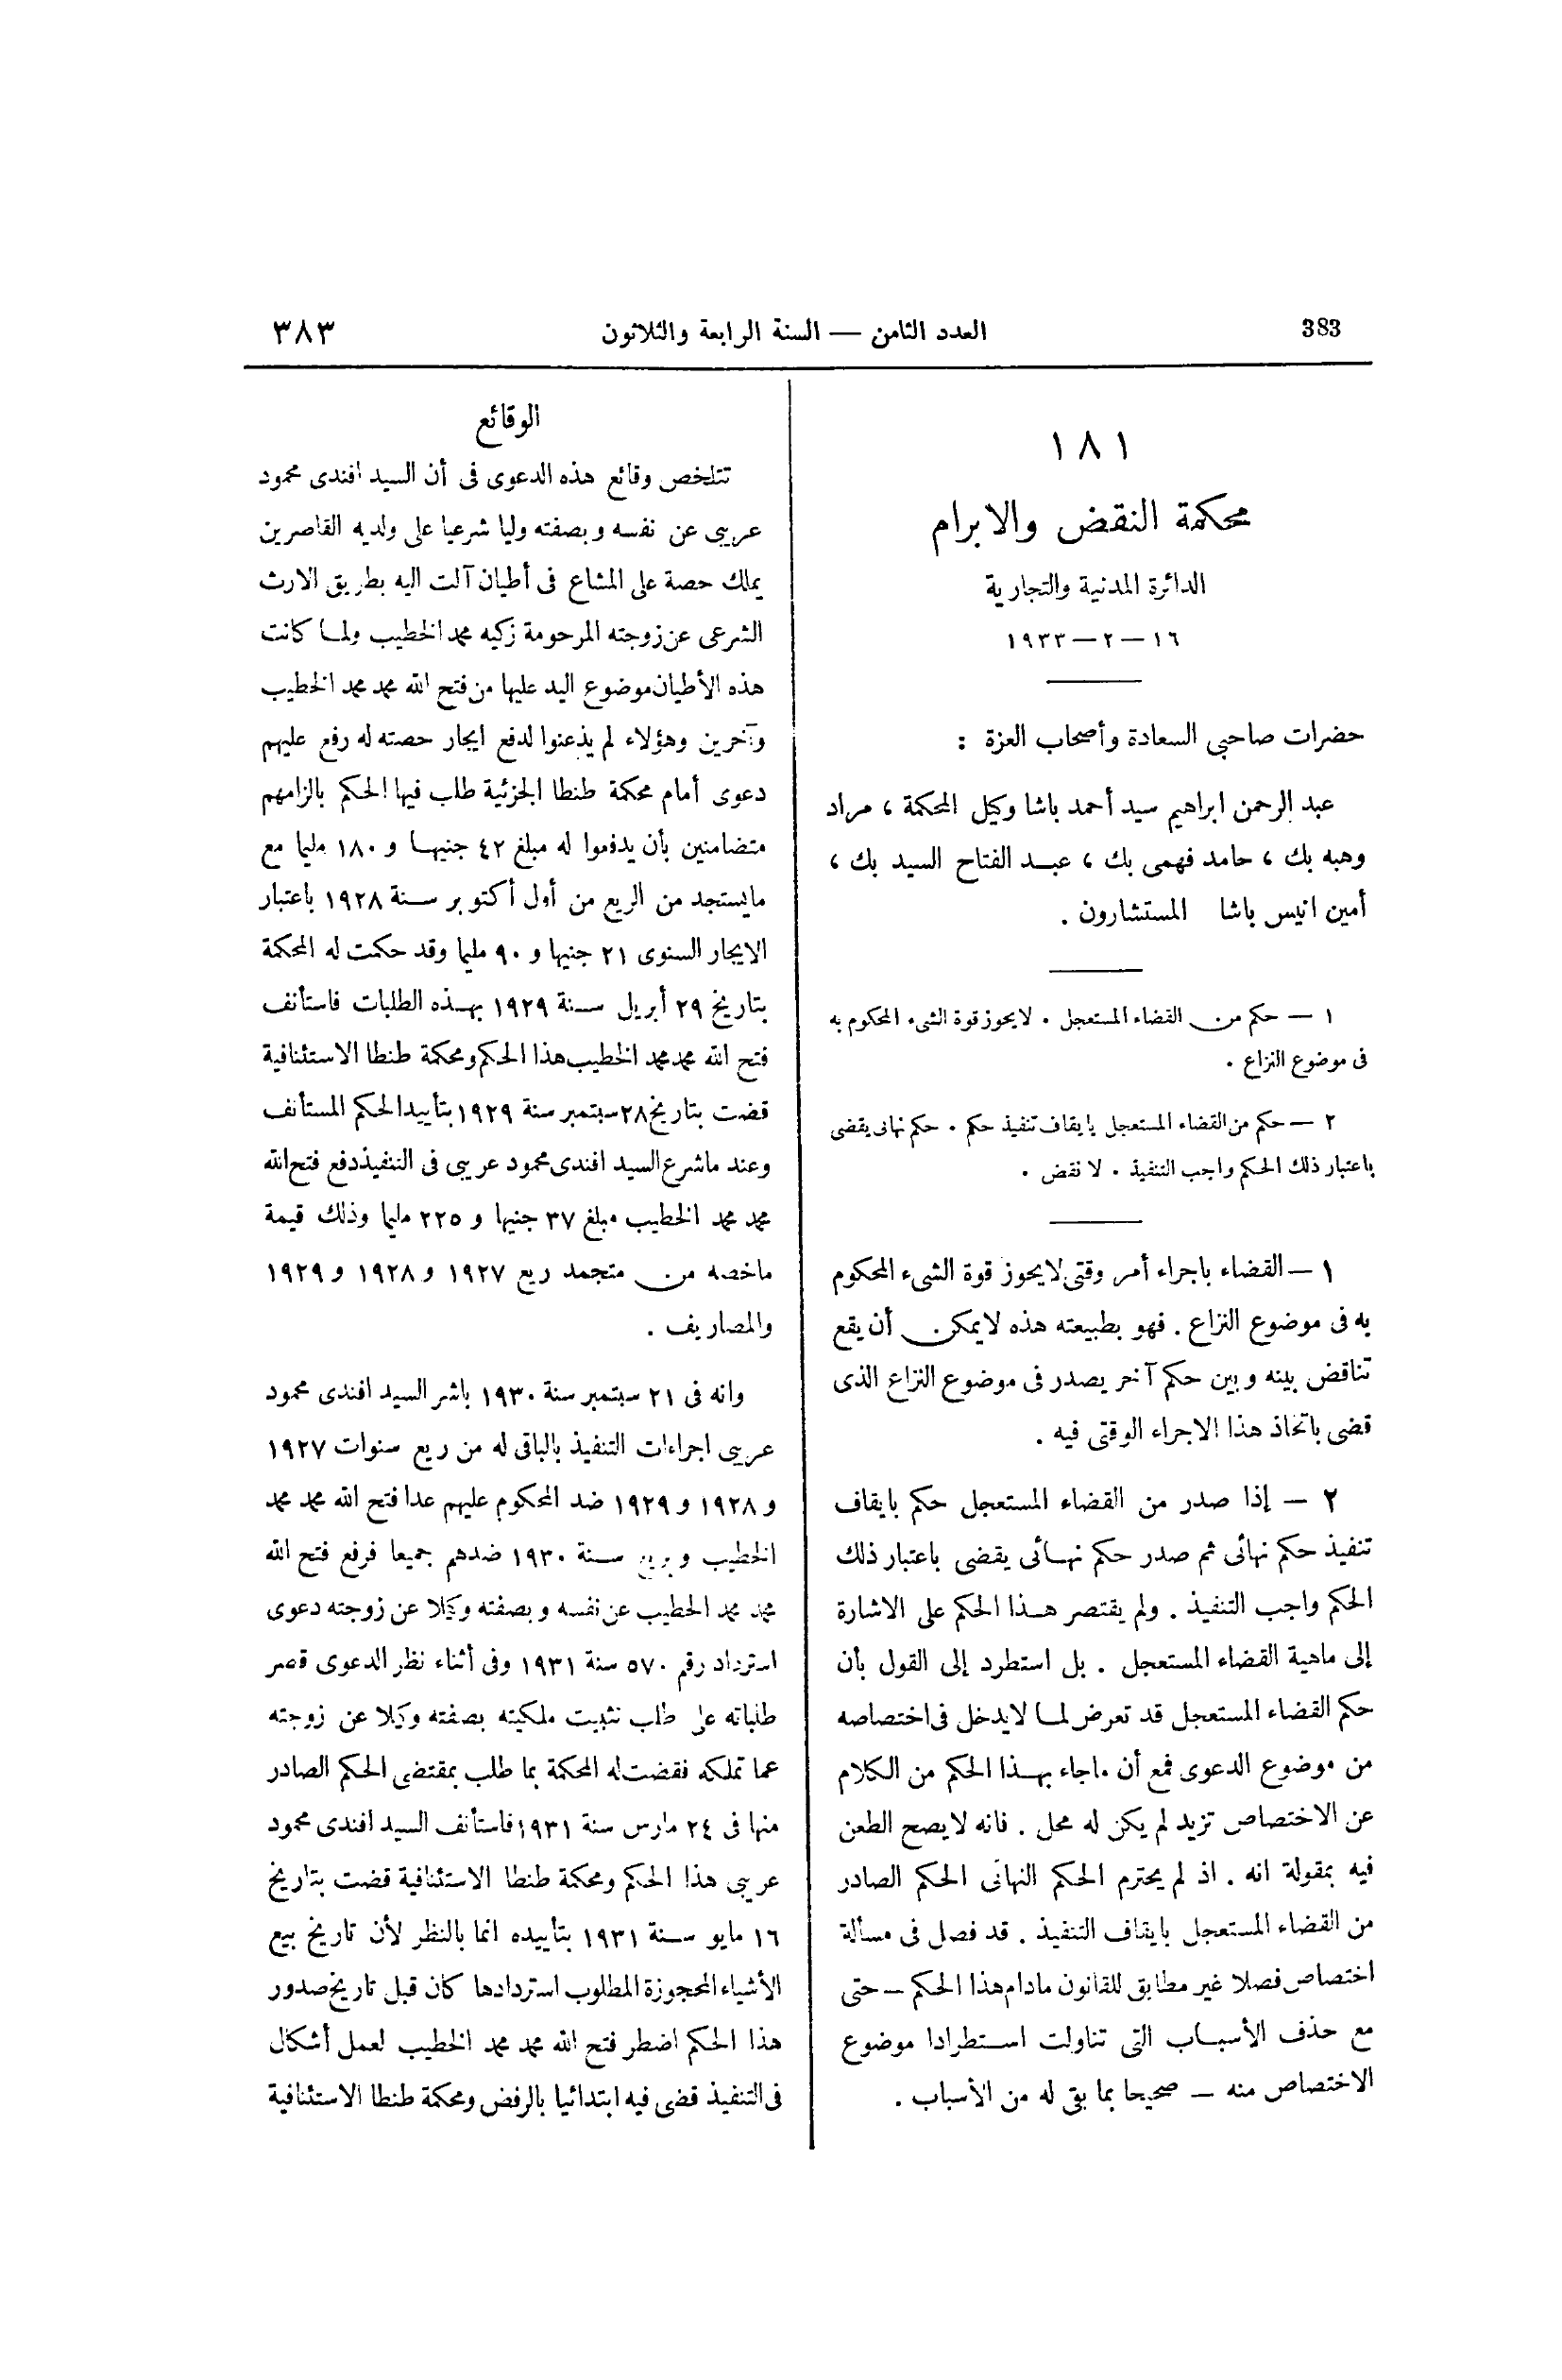 383
العدد الثامن — السنة الرابعة والثلاثون
٣٨٣
١٨١
محكمة النقض والابرام
الدائرة المدنية والتجارية
١٦ — ٢ — ١٩٣٣
حضرات صاحبي السعادة وأصحاب العزة :
عبد الرحمن ابراهيم سيد أحمد باشا وكيل المحكمة ، مراد
وهبه بك ، حامد فهمى بك ، عبد الفتاح السيد بك ،
أمين انيس باشا المستشارون .
١ — حكم من القضاء المستعجل . لا يحوز قوة الشىء المحكوم به
فى موضوع النزاع .
٢ — حكم من القضاء المستعجل بايقاف تنفيذ حكم . حكم نهائى يقضى
باعتبار ذلك الحكم واجب التنفيذ . لا نقض .
١ — القضاء باجراء أمر وقتى لا يحوز قوة الشىء المحكوم
به فى موضوع النزاع . فهو بطبيعته هذه لا يمكن أن يقع
تناقض بينه وبين حكم آخر يصدر فى موضوع النزاع الذى
قضى باتخاذ هذا الاجراء الوقتى فيه .
٢ — إذا صدر من القضاء المستعجل حكم بايقاف
تنفيذ حكم نهائى ثم صدر حكم نهائى يقضى باعتبار ذلك
الحكم واجب التنفيذ . ولم يقتصر هذا الحكم على الاشارة
إلى ماهية القضاء المستعجل . بل استطرد إلى القول بأن
حكم القضاء المستعجل قد تعرض لما لا يدخل فى اختصاصه
من موضوع الدعوى فمع أن ماجاء بهذا الحكم من الكلام
عن الاختصاص تزيد لم يكن له محل . فانه لا يصح الطعن
فيه بمقولة انه . اذ لم يحترم الحكم النهائى الحكم الصادر
من القضاء المستعجل بايقاف التنفيذ . قد فصل فى مسألة
اختصاص فصلا غير مطابق للقانون مادام هذا الحكم — حتى
مع حذف الأسباب التى تناولت استطرادا موضوع
الاختصاص منه — صحيحا بما بقى له من الأسباب .
الوقائع
تتلخص وقائع هذه الدعوى فى أن السيد افندى محمود
عريبى عن نفسه وبصفته وليا شرعيا على ولديه القاصرين
يملك حصة على المشاع فى أطيان آلت اليه بطريق الارث
الشرعى عن زوجته المرحومة زكيه محمد الخطيب ولما كانت
هذه الأطيان موضوع اليد عليها من فتح الله محمد محمد الخطيب
وآخرين وهؤلاء لم يذعنوا لدفع ايجار حصته له رفع عليهم
دعوى أمام محكمة طنطا الجزئية طلب فيها الحكم بالزامهم
متضامنين بأن يدفعوا له مبلغ ٤٢ جنيها و ١٨٠ مليما مع
مايستجد من الريع من أول أكتوبر سنة ١٩٢٨ باعتبار
الايجار السنوى ٢١ جنيها و ٩٠ مليما وقد حكمت له المحكمة
بتاريخ ٢٩ أبريل سنة ١٩٢٩ بهذه الطلبات فاستأنف
فتح الله محمد محمد الخطيب هذا الحكم ومحكمة طنطا الاستئنافية
قضت بتاريخ ٢٨ سبتمبر سنة ١٩٢٩ بتأييد الحكم المستأنف
وعند ماشرع السيد افندى محمود عريبى فى التنفيذ دفع فتح الله
محمد محمد الخطيب مبلغ ٣٧ جنيها و ٢٢٥ مليما وذلك قيمة
ماخصه من متجمد ريع ١٩٢٧ و ١٩٢٨ و ١٩٢٩
والمصاريف .
وانه فى ٢١ سبتمبر سنة ١٩٣٠ باشر السيد افندى محمود
عريبى اجراءات التنفيذ بالباقى له من ريع سنوات ١٩٢٧
و ١٩٢٨ و ١٩٢٩ ضد المحكوم عليهم عدا فتح الله محمد محمد
الخطيب وبريع سنة ١٩٣٠ ضدهم جميعا فرفع فتح الله
محمد محمد الخطيب عن نفسه وبصفته وكيلا عن زوجته دعوى
استرداد رقم ٥٧٠ سنة ١٩٣١ وفى أثناء نظر الدعوى قصر
طلباته على طلب تثبيت ملكيته بصفته وكيلا عن زوجته
عما تملكه فقضت له المحكمة بما طلب بمقتضى الحكم الصادر
منها فى ٢٤ مارس سنة ١٩٣١ فاستأنف السيد افندى محمود
عريبى هذا الحكم ومحكمة طنطا الاستئنافية قضت بتاريخ
١٦ مايو سنة ١٩٣١ بتأييده انما بالنظر لأن تاريخ بيع
الأشياء المحجوزة المطلوب استردادها كان قبل تاريخ صدور
هذا الحكم اضطر فتح الله محمد محمد الخطيب لعمل أشكال
فى التنفيذ قضى فيه ابتدائيا بالرفض ومحكمة طنطا الاستئنافية